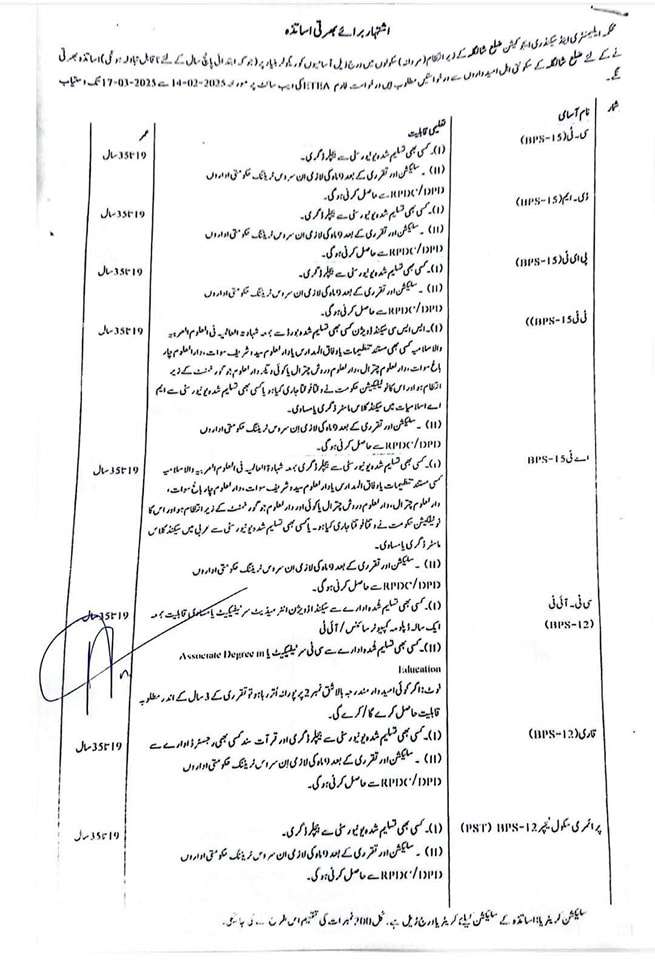 اشتہار برائے بھرتی اساتذہ
محکمہ ایلیمنٹری اینڈ سیکنڈری ایجوکیشن ضلع شانگلہ کے زیر انتظام (مردانہ) سکولوں میں درج ذیل آسامیوں کو ریگولر بنیاد پر (جو کہ ابتدائی پانچ سال کے لئے ناقابل تبادلہ ہو گی) اساتذہ بھرتی
نے کے لئے ضلع شانگلہ کے سکونتی اہل امیدواروں سے درخواستیں مطلوب ہیں درخواست فارم ETEA کی ویب سائٹ پر مورخہ 14-02-2025 سے 17-03-2025 تک دستیاب
گے۔
شمار نام آسامی تعلیمی قابلیت عمر
سی۔ٹی(BPS-15) (I)۔ کسی بھی تسلیم شدہ یونیورسٹی سے بیچلر ڈگری۔ 19 تا 35 سال
(II) ۔ سلیکشن اور تقرری کے بعد 9 ماہ کی لازمی ان سروس ٹریننگ حکومتی اداروں
RPDC/DPD سے حاصل کرنی ہو گی۔
ڈی۔ایم(BPS-15) (I)۔ کسی بھی تسلیم شدہ یونیورسٹی سے بیچلر ڈگری۔ 19 تا 35 سال
(II) ۔ سلیکشن اور تقرری کے بعد 9 ماہ کی لازمی ان سروس ٹریننگ حکومتی اداروں
RPDC/DPD سے حاصل کرنی ہو گی۔
پی ای ٹی(BPS-15) (I)۔ کسی بھی تسلیم شدہ یونیورسٹی سے بیچلر ڈگری۔ 19 تا 35 سال
(II) ۔ سلیکشن اور تقرری کے بعد 9 ماہ کی لازمی ان سروس ٹریننگ حکومتی اداروں
RPDC/DPD سے حاصل کرنی ہو گی۔
ٹی ٹی BPS-15)) (I)۔ ایس ایس سی سیکنڈ ڈویژن کسی بھی تسلیم شدہ بورڈ سے بمعہ شہادۃ العالمیہ فی العلوم العربیہ 19 تا 35 سال
والاسلامیہ کسی بھی مستند تنظیمات یا وفاق المدارس یا دارلعلوم سیدو شریف سوات، دارالعلوم چار
باغ سوات، دارلعلوم چترال، دارلعلوم دروش چترال یا کوئی دیگر دارلعلوم جو گورنمنٹ کے زیر
انتظام ہو اور اس کا نوٹیفکیشن حکومت نے وقتاً فوقتاً جاری کیا ہو یا کسی بھی تسلیم شدہ یونیورسٹی سے ایم
اے اسلامیات میں سیکنڈ کلاس ماسٹر ڈگری یا مساوی۔
(II) ۔ سلیکشن اور تقرری کے بعد 9 ماہ کی لازمی ان سروس ٹریننگ حکومتی اداروں
RPDC/DPD سے حاصل کرنی ہو گی۔
اے ٹی BPS-15 (I)۔ کسی بھی تسلیم شدہ یونیورسٹی سے بیچلر ڈگری بمعہ شہادۃ العالمیہ فی العلوم العربیہ والاسلامیہ 19 تا 35 سال
کسی مستند تنظیمات یا وفاق المدارس یا دارلعلوم سیدو شریف سوات، دارلعلوم چار باغ سوات،
دارلعلوم چترال، دارلعلوم دروش چترال یا کوئی اور دارلعلوم جو گورنمنٹ کے زیر انتظام ہو اور اس کا
نوٹیفکیشن حکومت نے وقتاً فوقتاً جاری کیا ہو۔ یا کسی بھی تسلیم شدہ یونیورسٹی سے عربی میں سیکنڈ کلاس
ماسٹر ڈگری یا مساوی۔
(II) ۔ سلیکشن اور تقرری کے بعد 9 ماہ کی لازمی ان سروس ٹریننگ حکومتی اداروں
RPDC/DPD سے حاصل کرنی ہو گی۔
سی ٹی۔ آئی ٹی (I)۔ کسی بھی تسلیم شدہ ادارے سے سیکنڈ ڈویژن انٹرمیڈیٹ سرٹیفکیٹ یا مساوی قابلیت بمعہ 19 تا 35 سال
(BPS-12) ایک سالہ ڈپلومہ کمپیوٹر سائنس / آئی ٹی
(II)۔ کسی بھی تسلیم شدہ ادارے سے سی ٹی سرٹیفکیٹ یا Associate Degree in
Education
نوٹ: اگر کوئی امیدوار مندرجہ بالا شق نمبر 2 پر پورا نہ اُتر رہا ہو تو تقرری کے 3 سال کے اندر مطلوبہ
قابلیت حاصل کرے گا/کرے گی۔
قاری(BPS-12) (I)۔ کسی بھی تسلیم شدہ یونیورسٹی سے بیچلر ڈگری اور قرآت سند کسی بھی رجسٹرڈ ادارے سے 19 تا 35 سال
(II) ۔ سلیکشن اور تقرری کے بعد 9 ماہ کی لازمی ان سروس ٹریننگ حکومتی اداروں
RPDC/DPD سے حاصل کرنی ہو گی۔
پرائمری سکول ٹیچر BPS-12 (PST) (I)۔ کسی بھی تسلیم شدہ یونیورسٹی سے بیچلر ڈگری۔ 19 تا 35 سال
(II) ۔ سلیکشن اور تقرری کے بعد 9 ماہ کی لازمی ان سروس ٹریننگ حکومتی اداروں
RPDC/DPD سے حاصل کرنی ہو گی۔
سلیکشن کریٹیریا: اساتذہ کے سلیکشن کیلئے کریٹیریا درج ذیل ہے۔ کل 200 نمبرات کی تقسیم اس طرح سے کی جائیگی۔